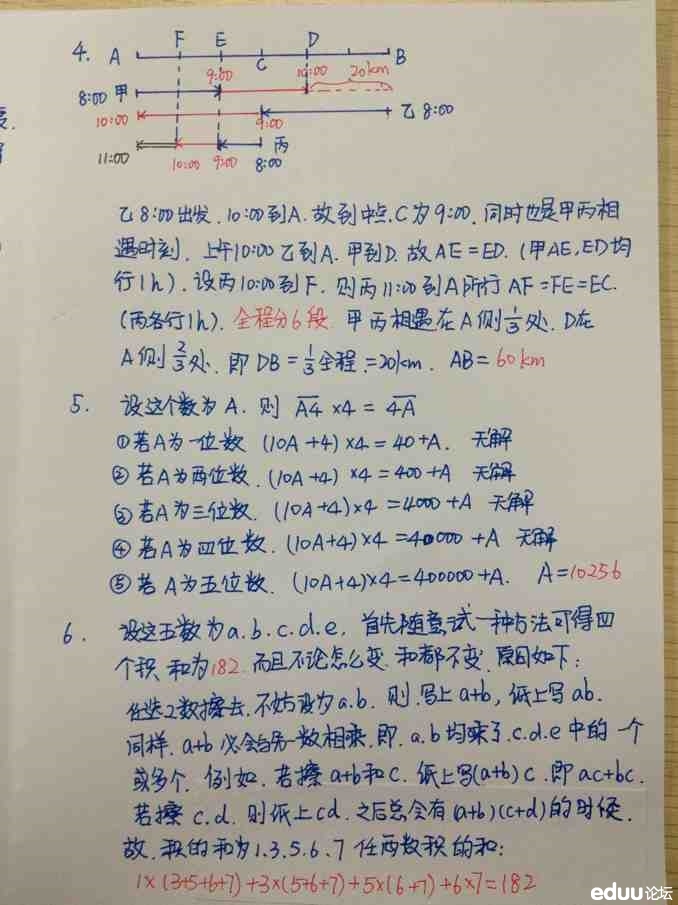 4. A F E C D B
9:00 10:00 20km
8:00 甲
10:00 9:00 乙 8:00
11:00 10:00 9:00 8:00 丙
乙8:00出发.10:00到A.故到中点C为9:00.同时也是甲丙相
遇时刻.上午10:00乙到A.甲到D.故AE=ED.(甲AE,ED均
行1h).设丙10:00到F.则丙11:00到A所行AF=FE=EC.
(丙各行1h).全程分6段.甲丙相遇在A侧1/3处.D在
A侧2/3处.即DB=1/3全程=20km.AB=60km
5. 设这个数为A.则 A4×4=4A
①若A为一位数 (10A+4)×4=40+A. 无解
②若A为两位数.(10A+4)×4=400+A 无解
③若A为三位数.(10A+4)×4=4000+A 无解
④若A为四位数.(10A+4)×4=40000+A 无解
⑤若A为五位数.(10A+4)×4=400000+A. A=10256
6. 设这五数为a.b.c.d.e,首先随意试一种方法可得四
个积 和为182.而且不论怎么变.和都不变.原因如下:
任选2数擦去.不妨设为a.b.则.写上a+b,纸上写ab.
同样.a+b必会与另一数相乘.即.a.b均乘了.c.d.e中的一个
或多个.例如.若擦a+b和c.纸上写(a+b)c.即ac+bc.
若擦c.d.则纸上cd.之后总会有(a+b)(c+d)的时候.
故.积的和为1.3.5.6.7任两数积的和:
1×(3+5+6+7)+3×(5+6+7)+5×(6+7)+6×7=182
eduu论坛